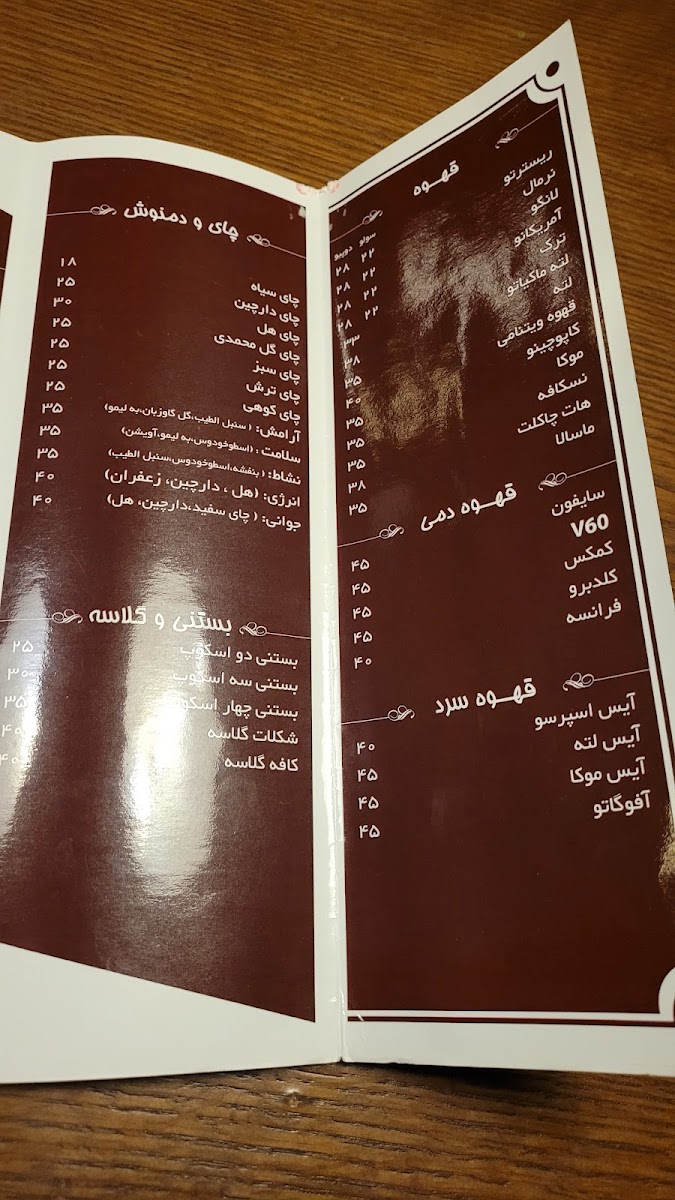 قهوه
سولو دوپیو
ریسترتو ۲۲ ۲۸
نرمال ۲۲ ۲۸
لانگو ۲۲ ۲۸
آمریکانو ۲۲ ۲۸
ترک ۳۳
لته ماکیاتو ۳۸
لته ۳۵
قهوه ویتنامی ۴۰
کاپوچینو ۳۵
موکا ۳۵
نسکافه ۳۵
هات چاکلت ۳۸
ماسالا ۳۵
قهوه دمی
سایفون ۴۵
V60 ۴۵
کمکس ۴۵
کلدبرو ۴۵
فرانسه ۴۰
قهوه سرد
آیس اسپرسو ۴۰
آیس لته ۴۵
آیس موکا ۴۵
آفوگاتو ۴۵
چای و دمنوش
چای سیاه ۱۸
چای دارچین ۲۵
چای هل ۳۰
چای گل محمدی ۲۵
چای سبز ۲۵
چای ترش ۲۵
چای کوهی ۲۵
آرامش: (سنبل الطیب،گل گاوزبان،به لیمو) ۳۵
سلامت: (اسطوخودوس،به لیمو،آویشن) ۳۵
نشاط: (بنفشه،اسطوخودوس،سنبل الطیب) ۳۵
انرژی: (هل ، دارچین، زعفران) ۴۰
جوانی: (چای سفید،دارچین، هل) ۴۰
بستنی و گلاسه
بستنی دو اسکوپ ۲۵
بستنی سه اسکوپ ۳۰
بستنی چهار اسکوپ ۳۵
شکلات گلاسه ۴۰
کافه گلاسه ۴۰